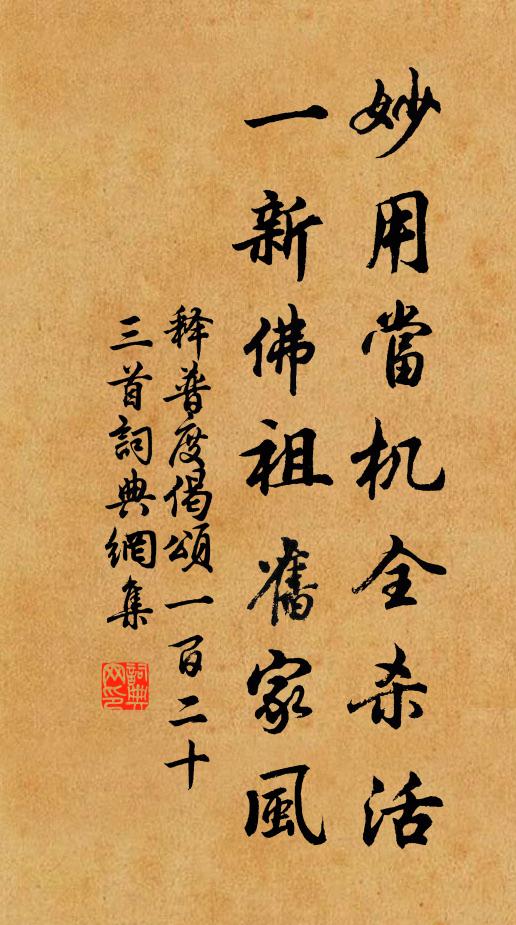 妙用當机全杀活
一新佛祖舊家風
释普度偈頌一百二十
三首詞典網集
詞典
网印